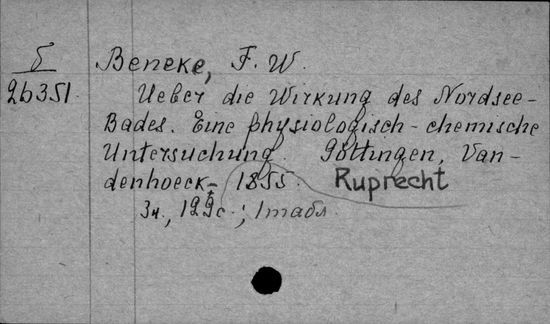 б
26351.
Beneke, F. W.
Ueber die Wirkung des Nordsee-
Bades. Eine physiologisch-chemische
Untersuchung. Göttingen, Van-
denhoeck- 1855.
Ruprecht
129с.; 1 табл.